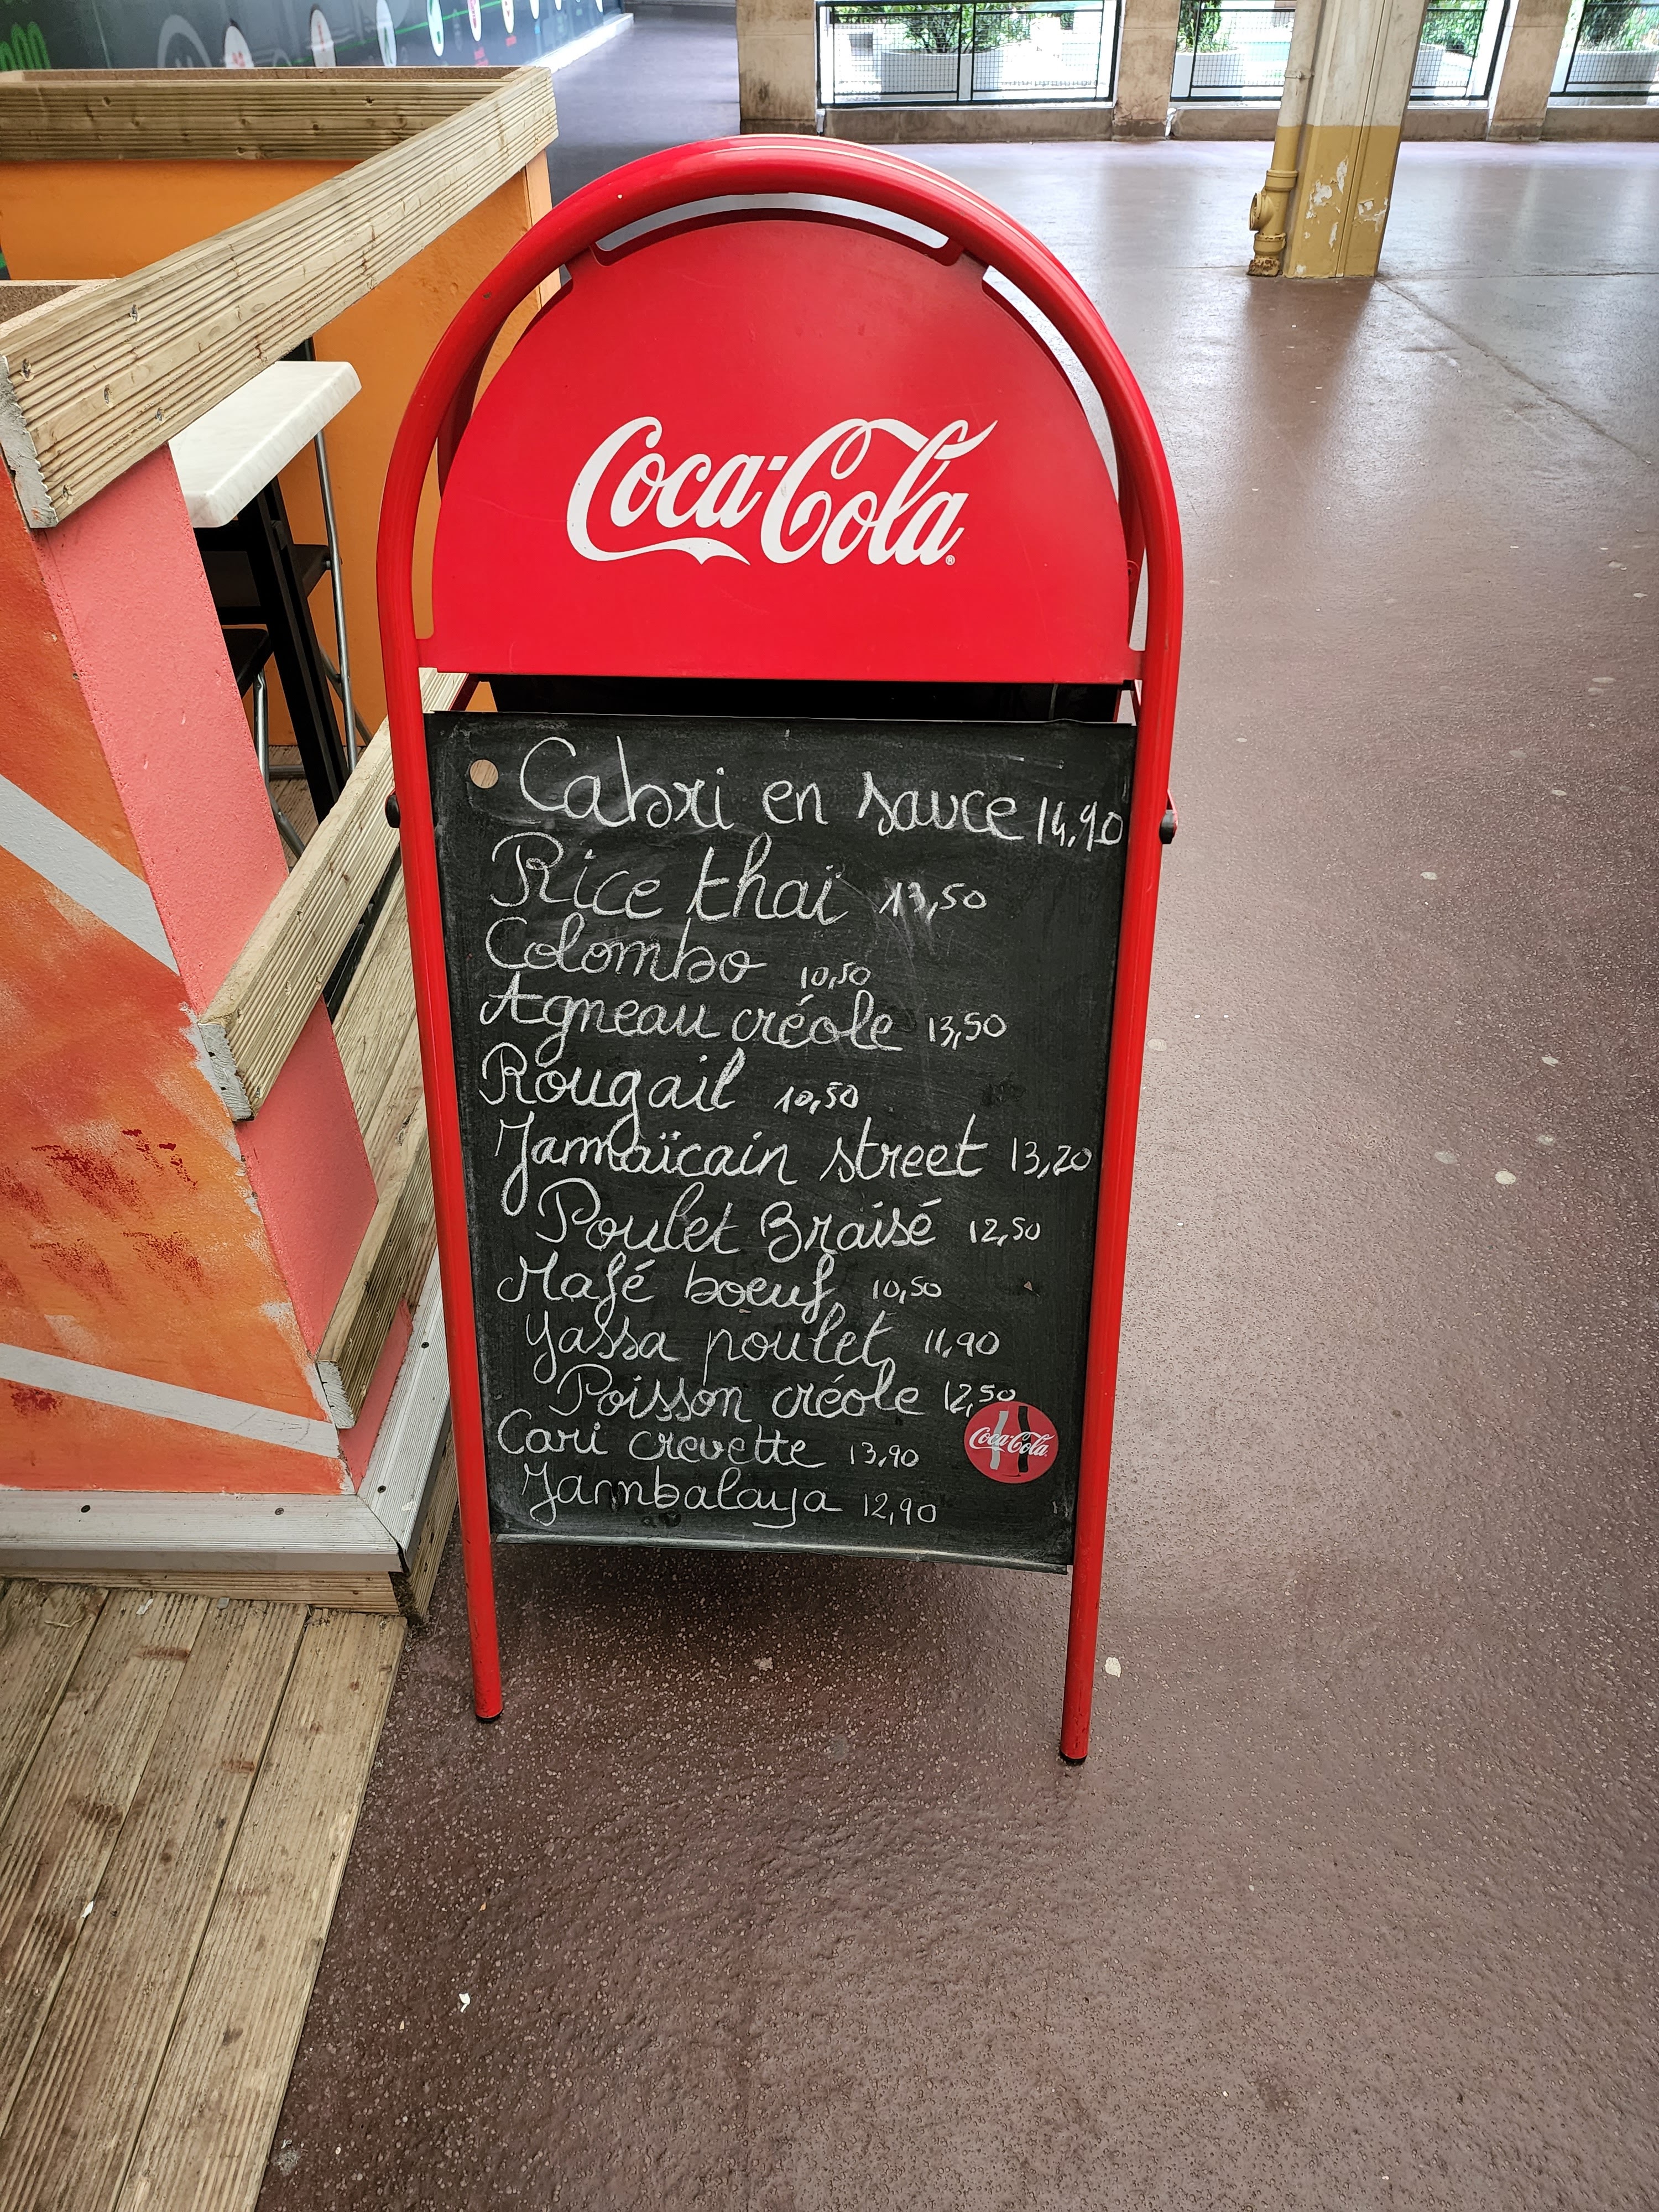 Coca-Cola
Cabri en sauce 14,90
Rice thaï 13,50
Colombo 10,50
Agneau créole 13,50
Rougail 10,50
Jamaïcain street 13,20
Poulet Braisé 12,50
Mafé boeuf 10,50
Yassa poulet 11,90
Poisson créole 12,50
Cari crevette 13,90
Jambalaya 12,90
Coca-Cola